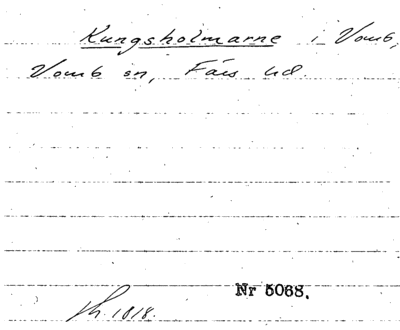 Kungsholmarne i Vomb,
Vomb sn, Färs hd.
Nr 5068.
1818.